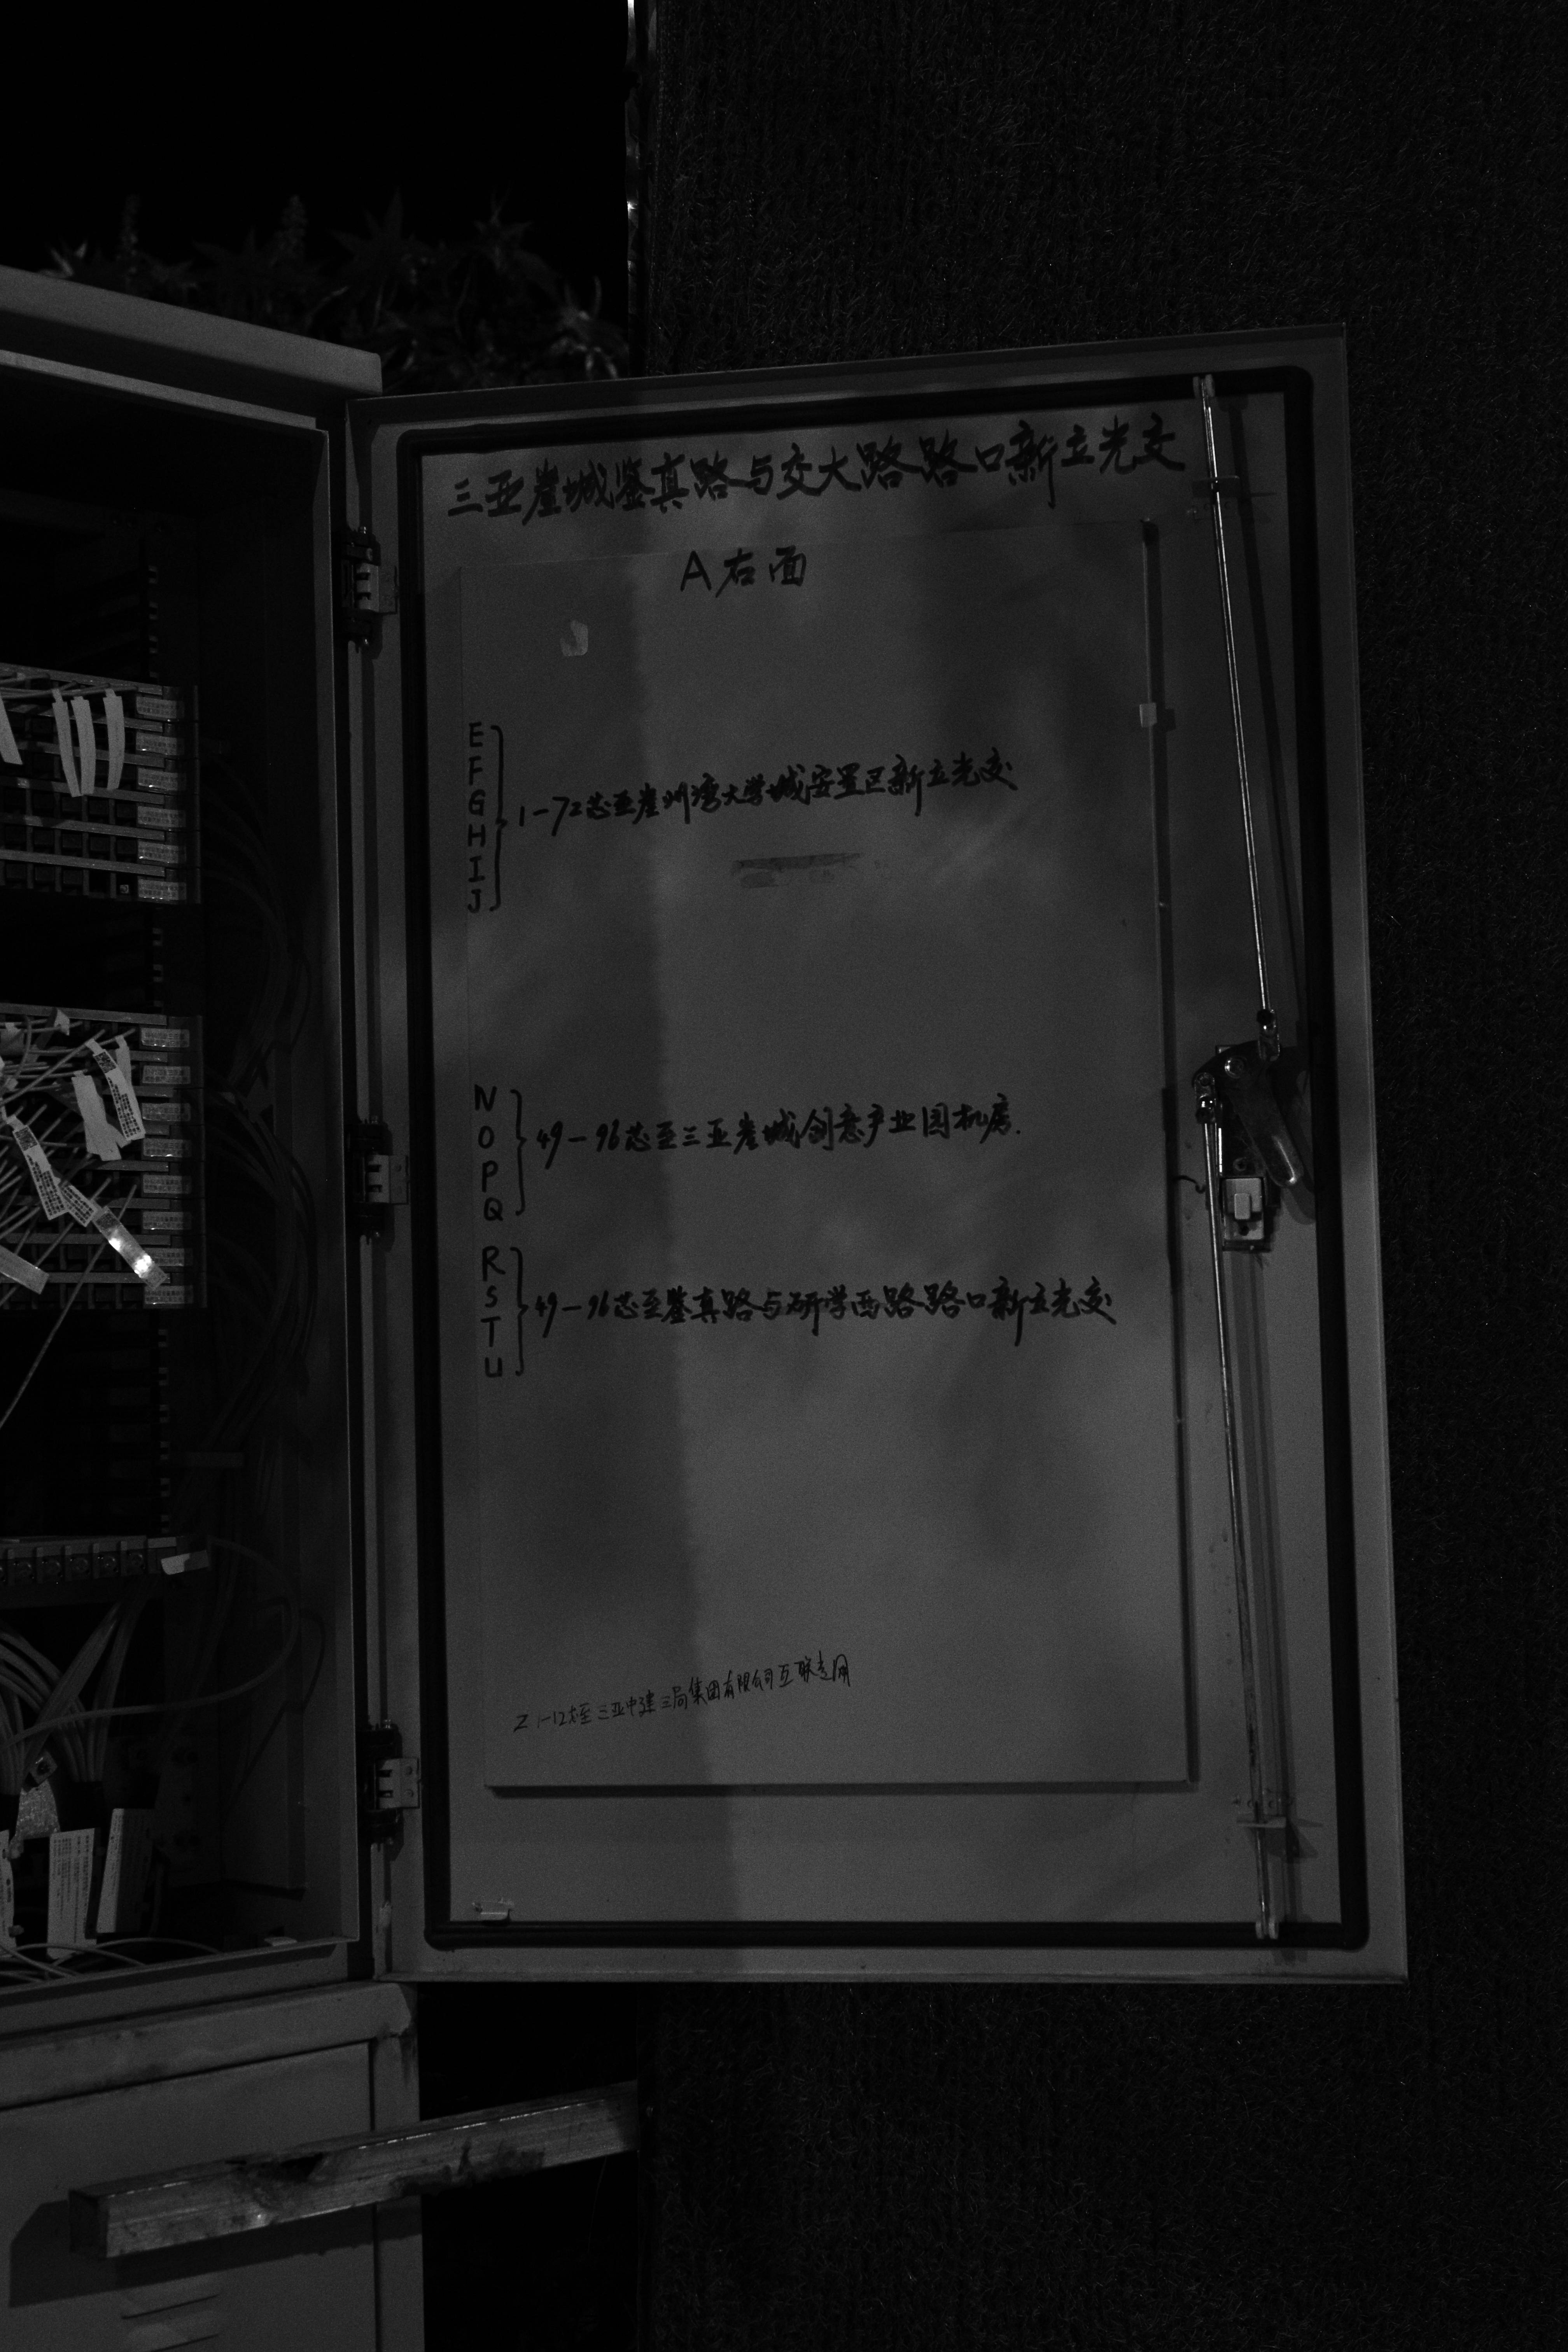 三亚崖城鉴真路与交大路路口新立光交
A右面
E
F
G
H
I
J
1-72芯至崖州湾大学城安置区新立光交
N
O
P
Q
49-96芯至三亚崖城创意产业园机房.
R
S
T
U
49-96芯至鉴真路与研学西路路口新立光交
Z 1-12芯至三亚中建三局集团有限公司互联专用